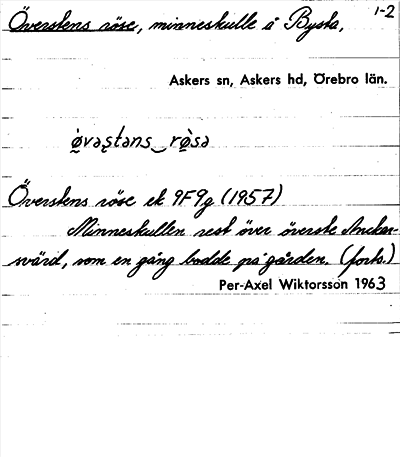 Överstens röse, minneskulle å Bysta, 1-2
Askers sn, Askers hd, Örebro län.
ø̀vəs̨təns‿rø̀sə
Överstens röse ek 9F9g (1957)
Minneskullen rest över överste Anckar-
svärd, som en gång bodde på gården. (forts.)
Per-Axel Wiktorsson 1963